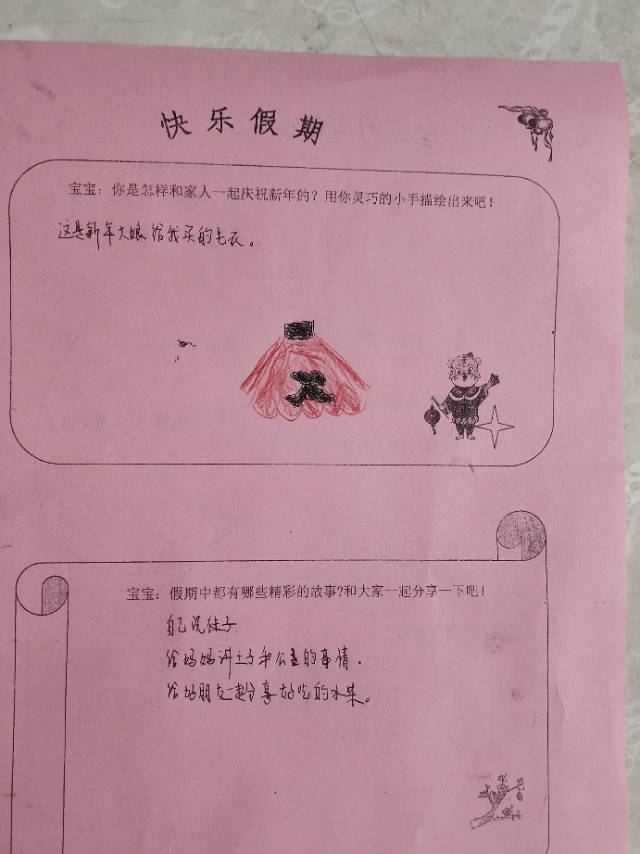 快乐假期
宝宝：你是怎样和家人一起庆祝新年的？用你灵巧的小手描绘出来吧！
这是新年大娘给我买的毛衣。
宝宝：假期中都有哪些精彩的故事?和大家一起分享一下吧！
自己洗袜子
给妈妈讲王子和公主的事情.
给好朋友一起分享好吃的水果。